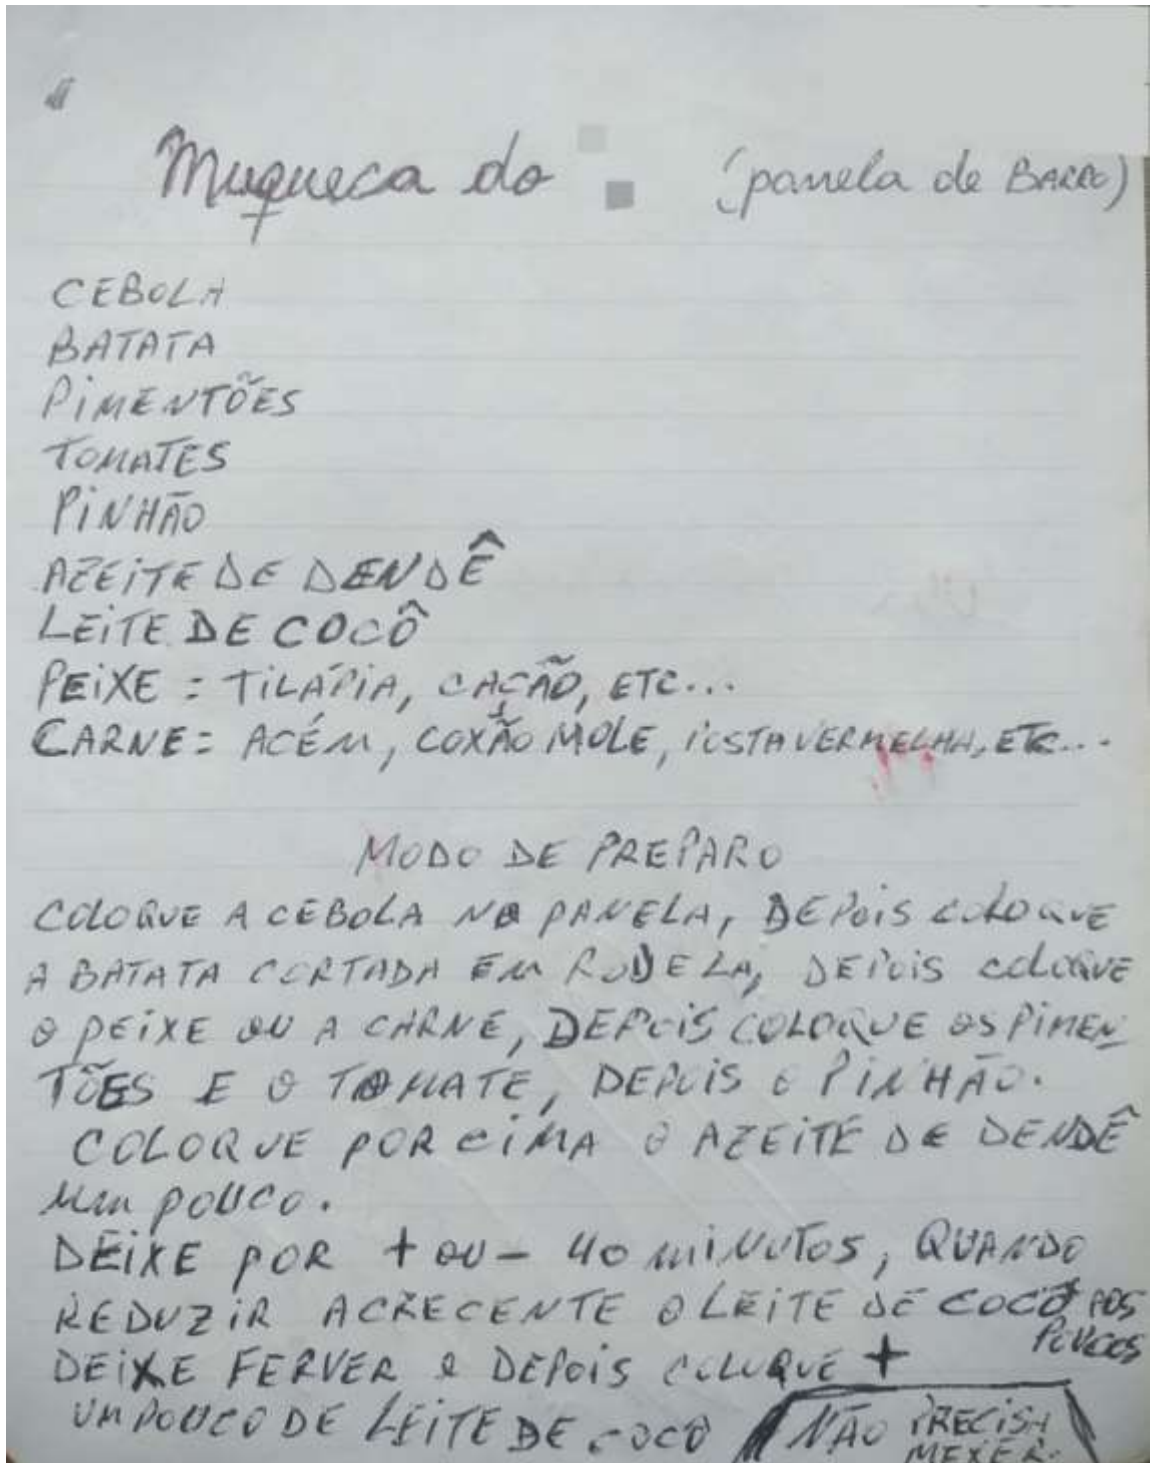 Muqueca do (panela de BARRO)
CEBOLA
BATATA
PIMENTÕES
TOMATES
PINHÃO
AZEITE DE DENDÊ
LEITE DE COCÔ
PEIXE = TILÁPIA, CAÇÃO, ETC...
CARNE = ACÉM, COXÃO MOLE, POSTA VERMELHA, ETC...
MODO DE PREPARO
COLOQUE A CEBOLA NA PANELA, DEPOIS COLOQUE
A BATATA CORTADA EM RODELA, DEPOIS COLOQUE
O PEIXE OU A CARNE, DEPOIS COLOQUE OS PIMEN
TÕES E O TOMATE, DEPOIS O PINHÃO.
COLOQUE POR CIMA O AZEITE DE DENDÊ
UM POUCO.
DEIXE POR + OU - 40 MINUTOS, QUANDO
REDUZIR ACRECENTE O LEITE DE COCO AOS
POUCOS
DEIXE FERVER e DEPOIS COLOQUE +
UM POUCO DE LEITE DE COCO
NÃO PRECISA
MEXER.